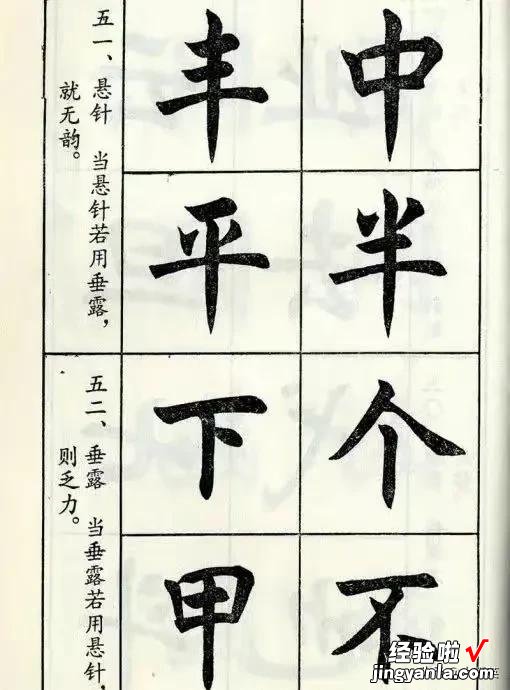 中 丰
半 平
五一、悬针 当悬针若用垂露，
就无韵。
个 下
不 甲
五二、垂露 当垂露若用悬针，
则乏力。
经验啦√
jingyanla.com